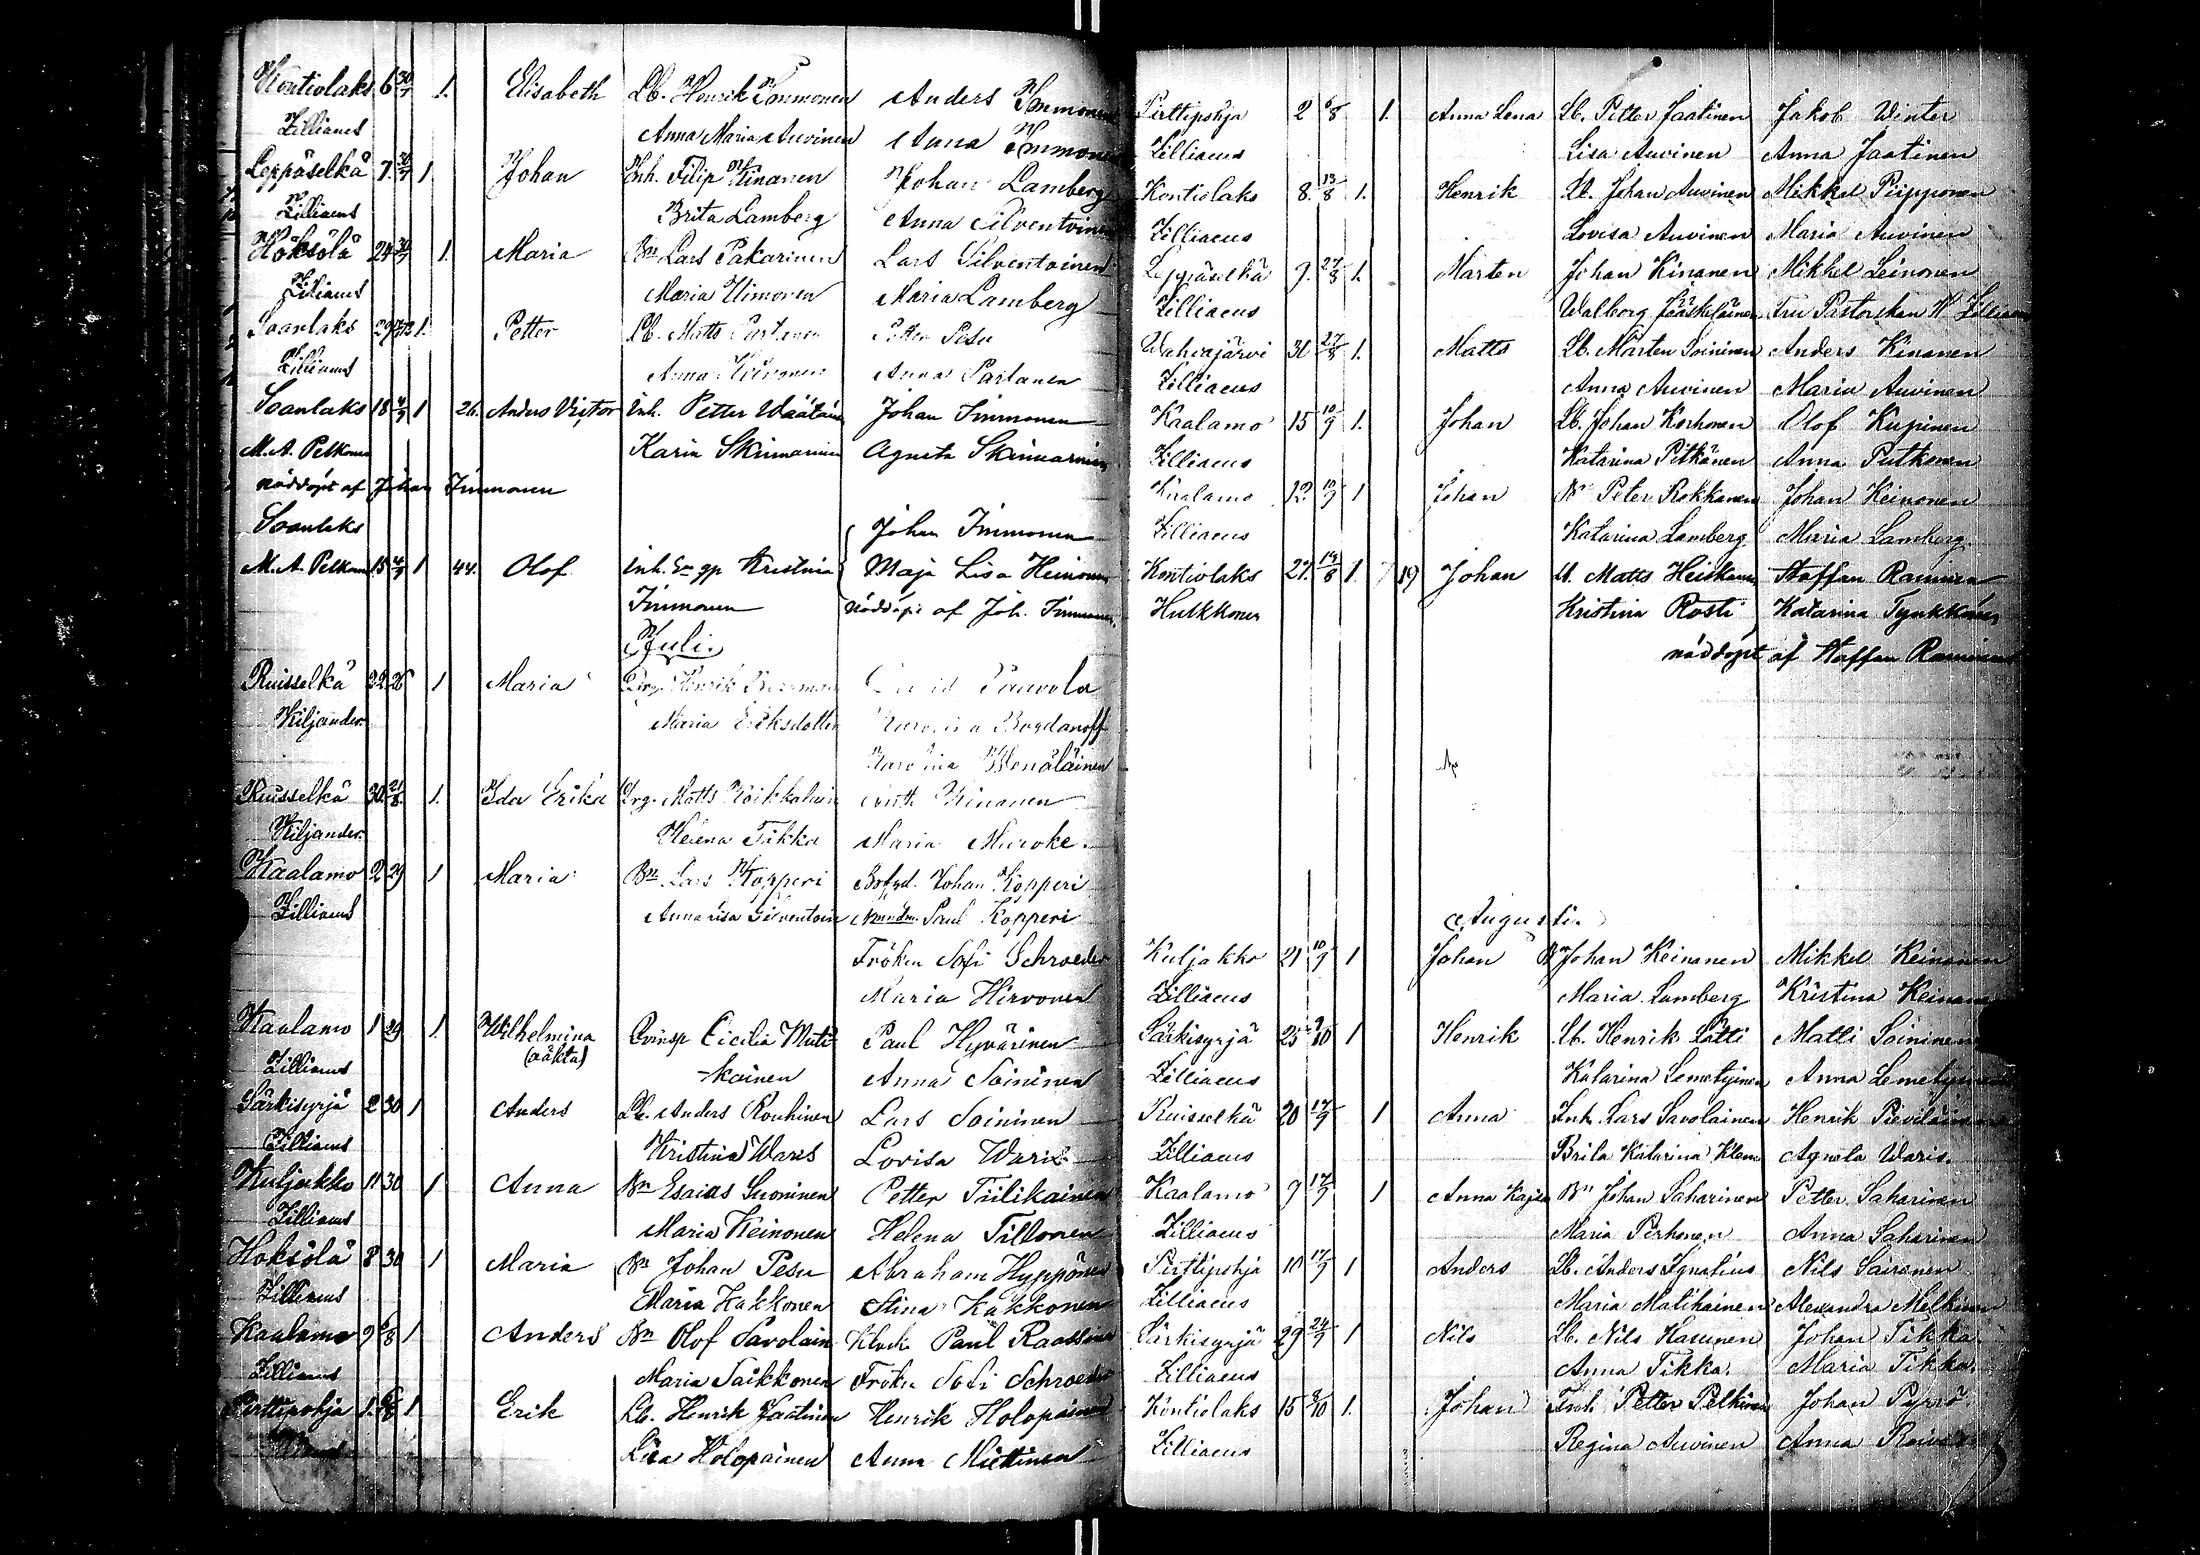 Kontiolaks 6 30/7 1. Elisabeth Lb. Henrik Immonen Anders Immonen
Zilliacus Anna Maria Auvinen Anna Immonen
Leppäselkä 7 30/7 1 Johan Inh. Filip Kinanen Johan Lamberg
Zilliacus Brita Lamberg Anna Silventoinen
Höksölä 24 30/7 1. Maria Bn Lars Pakarinen Lars Silventoinen
Zilliacus Maria Maria Lamberg
Soanlaks 29 1. Petter Lb. Matts Partanen Petter Pesu
Zilliacus Anna Anna Partanen
Soanlaks 18 4/7 1 26. Anders Victor Inh. Petter Wäätäin Johan Immonen
M. A. Pelkonen Karin Skinnarinen Agneta Skinnarinen
nöddöpt af Johan Immonen
Soanlaks Johan Immonen
M. A. Pelkonen 15 4/7 1 44. Olof Inh. Kristina Maja Lisa Heinonen
Immonen nöddöpt af Joh. Immonen
Juli.
Ruisselkä 22 26 1 Maria Henrik Paavola
Kiljander Maria Eriksdotter Bogdanoff
Wenäläinen
Ruisselkä 30 1. Ida Erika Drg. Matts Kinanen
Kiljander Helena Tikka Maria
Kaalamo 2 29 1 Maria Bn Lars Kopperi Johan Kopperi
Zilliacus Anna Lisa Silventoin Paul Kopperi
Fröken Sofi Schroeder
Maria Hirvonen
Kaalamo 1 29 1. Wilhelmina Cicilia Muti Paul Hyvärinen
Zilliacus (oäkta) -kainen Anna Soininen
Särkisyrjä 2 30 1 Anders Lb. Anders Rouhinen Lars Soininen
Zilliacus Kristina Waris Lovisa Waris
Kuljakko 11 30 1 Anna Bn Esaias Suoninen Petter Tiilikainen
Zilliacus Maria Keinonen Helena Tiilonen
Hoksölä 8 30 1 Maria Bn Johan Pesu Abraham Hyppönen
Zilliacus Maria Kakkonen Stina Kakkonen
Kaalamo 9 6/8 1 Anders Bn Olof Savolain Paul
Zilliacus Maria Saikkonen Fröken Sofi Schroeder
Pirttipohja 1. 6/8 1 Erik Lb. Henrik Jaatinen Henrik Holopainen
Lisa Holopainen Anna Miettinen
Pirttipohja 2 6/8 1. Anna Lena Lb. Petter Jaatinen Jakob Winter
Zilliacus Lisa Auvinen Anna Jaatinen
Kontiolaks 8. 13/8 1. Henrik Lb. Johan Auvinen Mikkel Piipponen
Zilliacus Lovisa Auvinen Maria Auvinen
Leppäselkä 9. 27/8 1. Mårten Johan Kinanen Mikkel Leinonen
Zilliacus Walborg Jääskeläinen Fru Pastorskan Zilliacus
Wahvajärvi 30 27/8 1. Matts Lb. Mårten Soininen Anders Kinanen
Zilliacus Anna Auvinen Maria Auvinen
Kaalamo 15 10/9 1. Johan Lb. Johan Korhonen Olof Kupinen
Zilliacus Katarina Pitkänen Anna Putkonen
Kaalamo 12 10/9 1 Johan Bn Peter Rokkanen Johan Keinonen
Zilliacus Katarina Lamberg Maria Lamberg
Kontiolaks 27. 1. 19 Johan Lb. Matts Heiskanen Staffan Raninen
Hukkonen Kristina Rosti Katarina Tynkkönen
nöddöpt af Staffan Raninen
Augusti.
Kuljakko 21 10/9 1 Johan Bn Johan Keinanen Mikkel Keinanen
Zilliacus Maria Lamberg Kristina Keinanen
Särkisyrjä 25 1 Henrik Lb. Henrik Lätti Matti Soininen
Zilliacus Katarina Lemetyinen Anna Lemetyinen
Ruisselkä 20 17/9 1 Anna Inh. Lars Savolainen Henrik Pieviläinen
Zilliacus Brita Katarina Klem Agneta Waris.
Kaalamo 9 17/9 1 Anna Kajsa Bn Johan Saharinen Petter Saharinen
Zilliacus Maria Perhonen Anna Saharinen
Pirttipohja 10 17/9 1 Anders Lb. Anders Ignatius Nils Sairanen
Zilliacus Maria Matikainen Alexandra Melkinen
Särkisyrjä 29 24/9 1 Nils Lb. Nils Hasunen Johan Tikka
Zilliacus Anna Tikka. Maria Tikka.
Kontiolaks 15 8/10 1. Johan Petter Pelkinen Johan Pyrrö
Zilliacus Regina Auvinen Anna